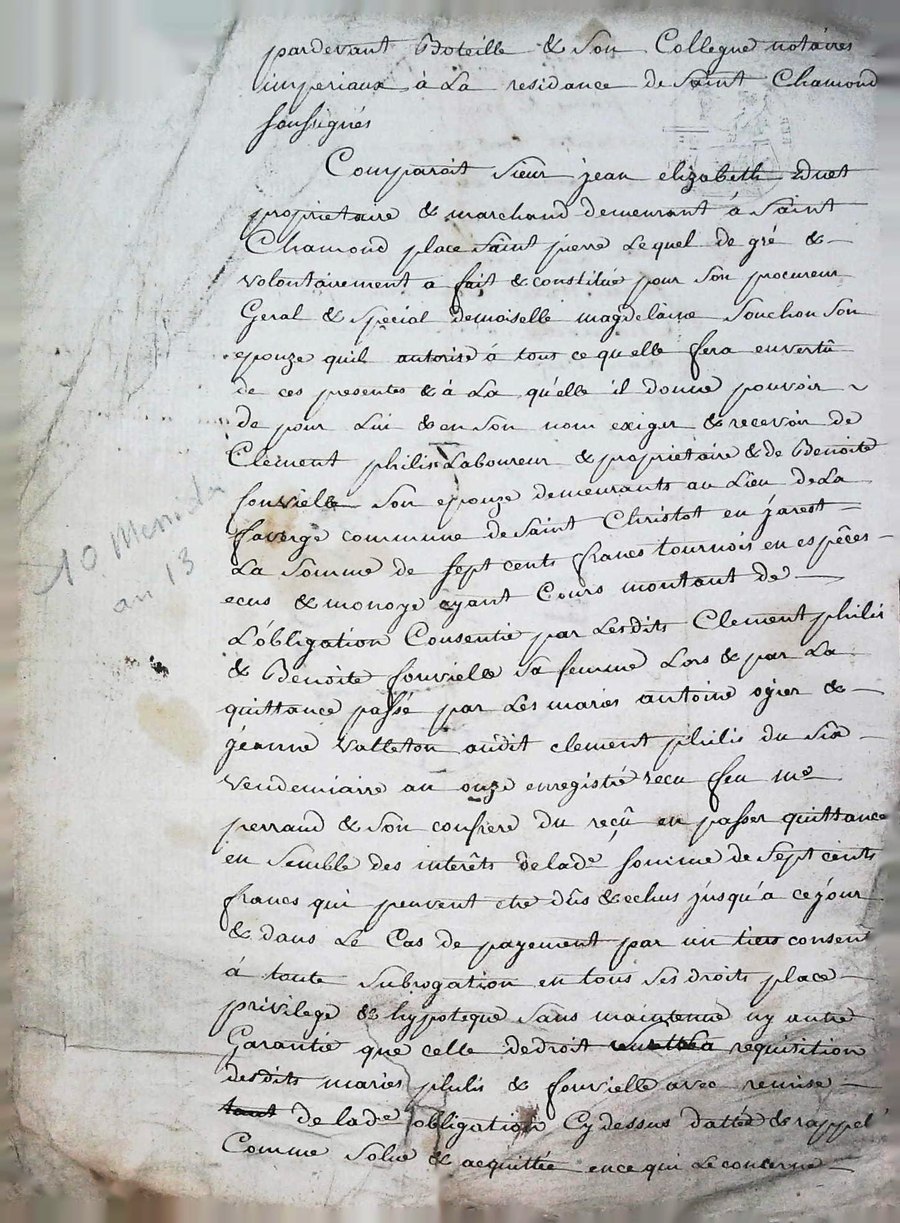 pardevant Boteille & Son Collegue notaires
imperiaux à La residance de Saint Chamond
soussignés
Comparoit Sieur jean elizabeth
proprietaire & marchand demeurant à Saint
Chamond place Saint pierre Lequel de gré &
volontairement a fait & constitué pour Son procureur
Geral & Special demoiselle magdelaine Souchon Son
epouze quil autorise à tous ce quelle fera envertû
de ces presentes & à La qu'elle il donne pouvoir
de pour Lui & en Son nom exiger & recevoir de
Clement philis Laboureur & propriétaire & de Benoite
fonvielle Son epouze demeurants au Lieu de La
faverge commune de Saint Christot en jarest
La Somme de Sept cents francs tournois en espêces
ecus & monoye ayant Cours montant de
L'obligation Consentie par Lesdits Clement philis
& Benoite fonvielle Sa femme Lors & par La
quittance passé par Les maries antoine ogier &
jeanne Valleton audit clement philis du Six
Vendemiaire an onze enregistré recu feu me
perraud & Son confrere du reçû en passer quittance
en Semble des interêts delade Somme de Sept cents
francs qui peuvent etre dûs & echus jusqu'a ce jour
& dans Le Cas de payement par un tiers consent
à toute Subrogation en tous Ses droits place
privilege & hypoteque Sans maintenue ny autre
Garantie que celle dedroit a requisition
desdits maries philis & fonvielle avec remise
tant delade obligation Cydessus dattée & rappel
Comme Solue & acquittée en ce qui Le concerne
10 Messidor
an 13